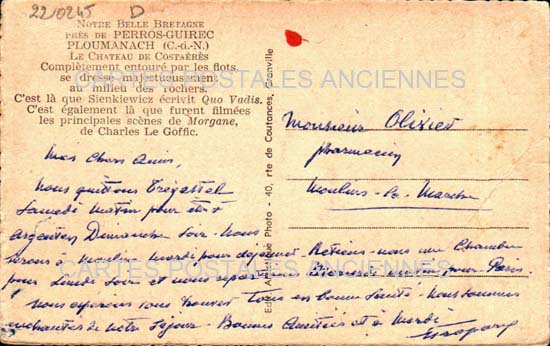 22/0245 D
Notre Belle Bretagne
près de PERROS-GUIREC
PLOUMANACH (C.-d.-N.)
Le Chateau de Costaérès
Complètement entouré par les flots,
se dresse majestueusement
au milieu des rochers.
C'est là que Sienkiewicz écrivit Quo Vadis.
C'est également là que furent filmées
les principales scènes de Morgane,
de Charles Le Goffic.
CARTES POSTALES ANCIENNES
Artistique Photo - 40, rte de Coutances, Granville
Monsieur Olivier
pharmacien
Moulins-la-Marche
Mes chers Amis,
Nous quittons Trégastel
Samedi matin pour être
Argentan Dimanche soir. Nous
serons à Moulins mardi pour déjeuner. Retenez-nous une Chambre
pour Soir et nous matin pour Paris.
CARTES POSTALES ANCIENNES
Nous espérons vous trouver Tous en bonne Santé. Nous sommes
enchantés de notre Séjour. Bonnes Amitiés et à Mardi